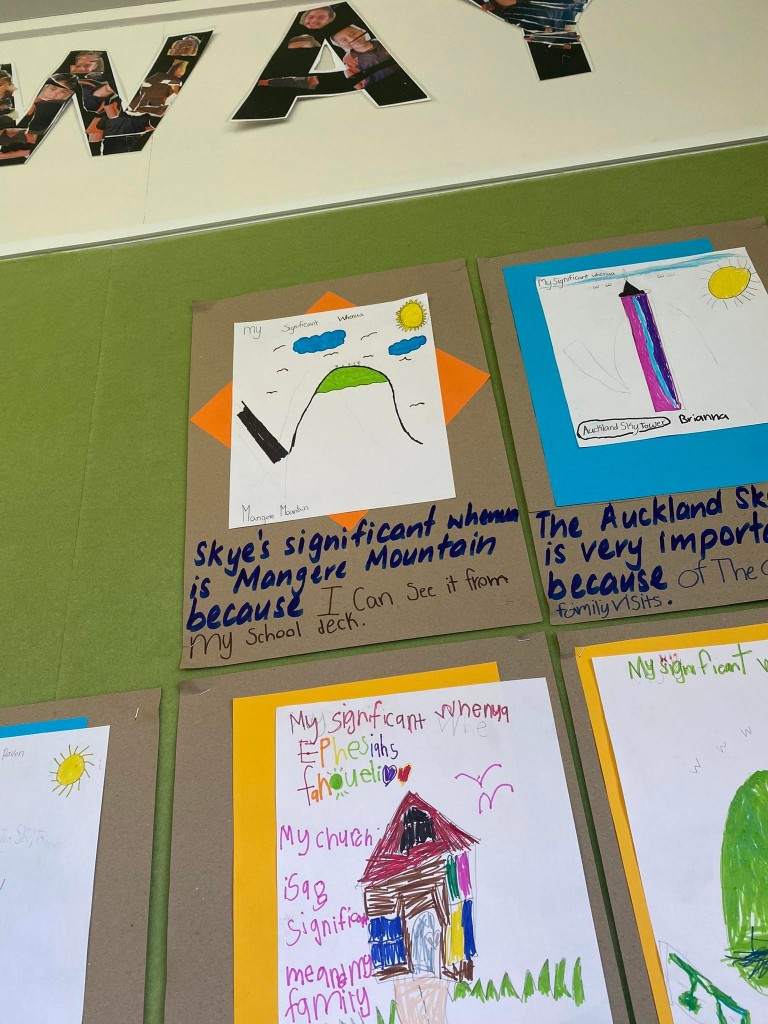 WAY
My Significant Whenua
Mangere Mountain
Skye's significant whenua
is Mangere Mountain
because I Can See it from
my School deck.
My Significant whenua
Auckland Sky Tower
Brianna
The Auckland Sk
is very importa
because of The
family visits.
My signficant Whenya
EPhesiahs
fahoueli
My church
isag
Significan
meandmy
family
My significant w